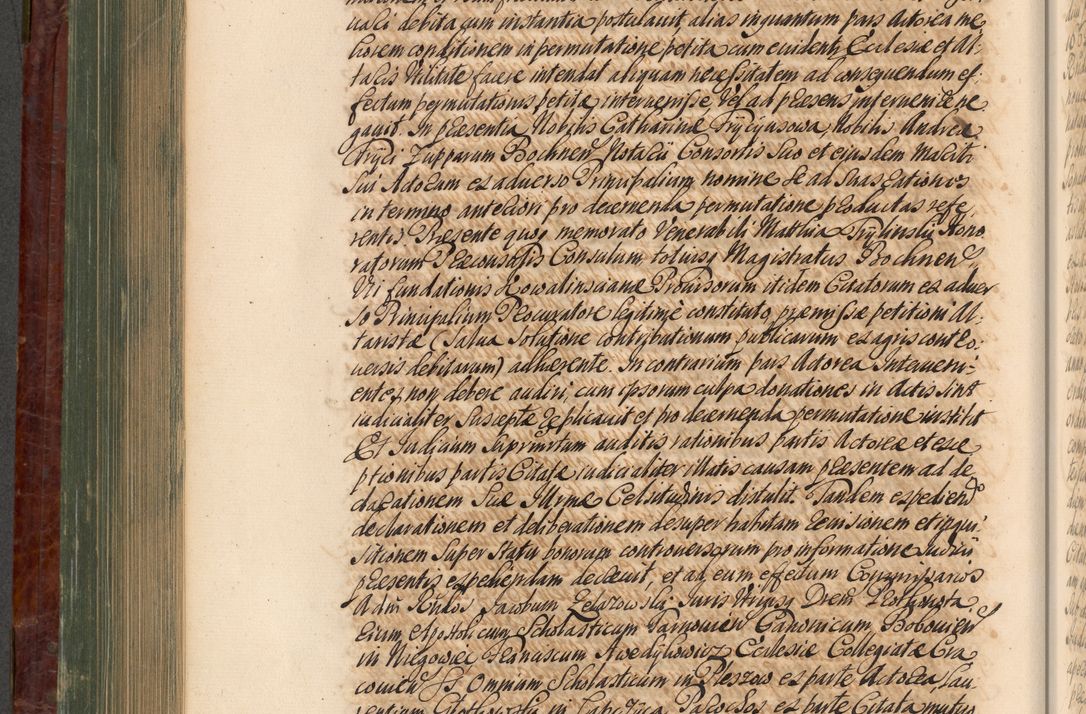 uali debita cum instantia postulavit, alias in quantum pars Actorea me
liorem conditionem in permutatione petita cum evidenti Ecclesiæ et Al-
taris Utilitate facere intendat aliquam necessitatem ad consequendum ef-
fectum permutationis petitæ intervenisse vel ad præsens intervenire ne
gavit. In præsentia Nobilis Catharinæ Nobilis Andreæ
Zupparum Bochnen Notarii Consortis suo et ejusdem Mariti
sui Actorum ex adverso Principalium nomine se ad suas rationes
in termino anteriori pro decernenda permutatione productas refe
rentis. Præsente quoq memorato Venerabili Matthia Hono
ratorum Præconsulis Consulum totiusq Magistratus Bochnen
Uti fundationis Kowalinscianæ Provisorum itidem Citatorum ex adver
so Principalium Procuratore legitime constituto, præmissæ petitioni Al-
taristæ (salva solutione contributionum publicarum ex agris contro-
versis debitarum) adhærente. In contrarium pars Actorea Interveni-
entes non debere audiri, cum ipsorum culpa donationes in Actis sint
judicialiter susceptæ replicavit et pro decernenda permutatione institit
Et Judicium suprmtum auditis rationibus partis Actoreæ et exce
ptionibus partis Citatæ judicialiter illatis causam præsentem ad de
clarationem Suæ Illrmæ Celsitudinis distulit. Tandem expediend
declarationem et deliberationem desuper habitam revisionem et inqui
sitionem super statu bonorum controversorum pro informatione Judicii
præsentis expediendam decrevit, et ad eum effectum Commissarios
Adm Rndos Jacobum Zelazowski Juris Utriusq Drem Prothonota
rium Apostolicum Scholasticum Tarnovien Canonicum Bobovien
in Niegowiec Franciscum Ecclesiæ Collegiatæ Cra
coviæ SS. Omnium Scholasticum in Pleszow ex parte Actorea, Lau
rentium in Parochos ex parte Citata mutuo